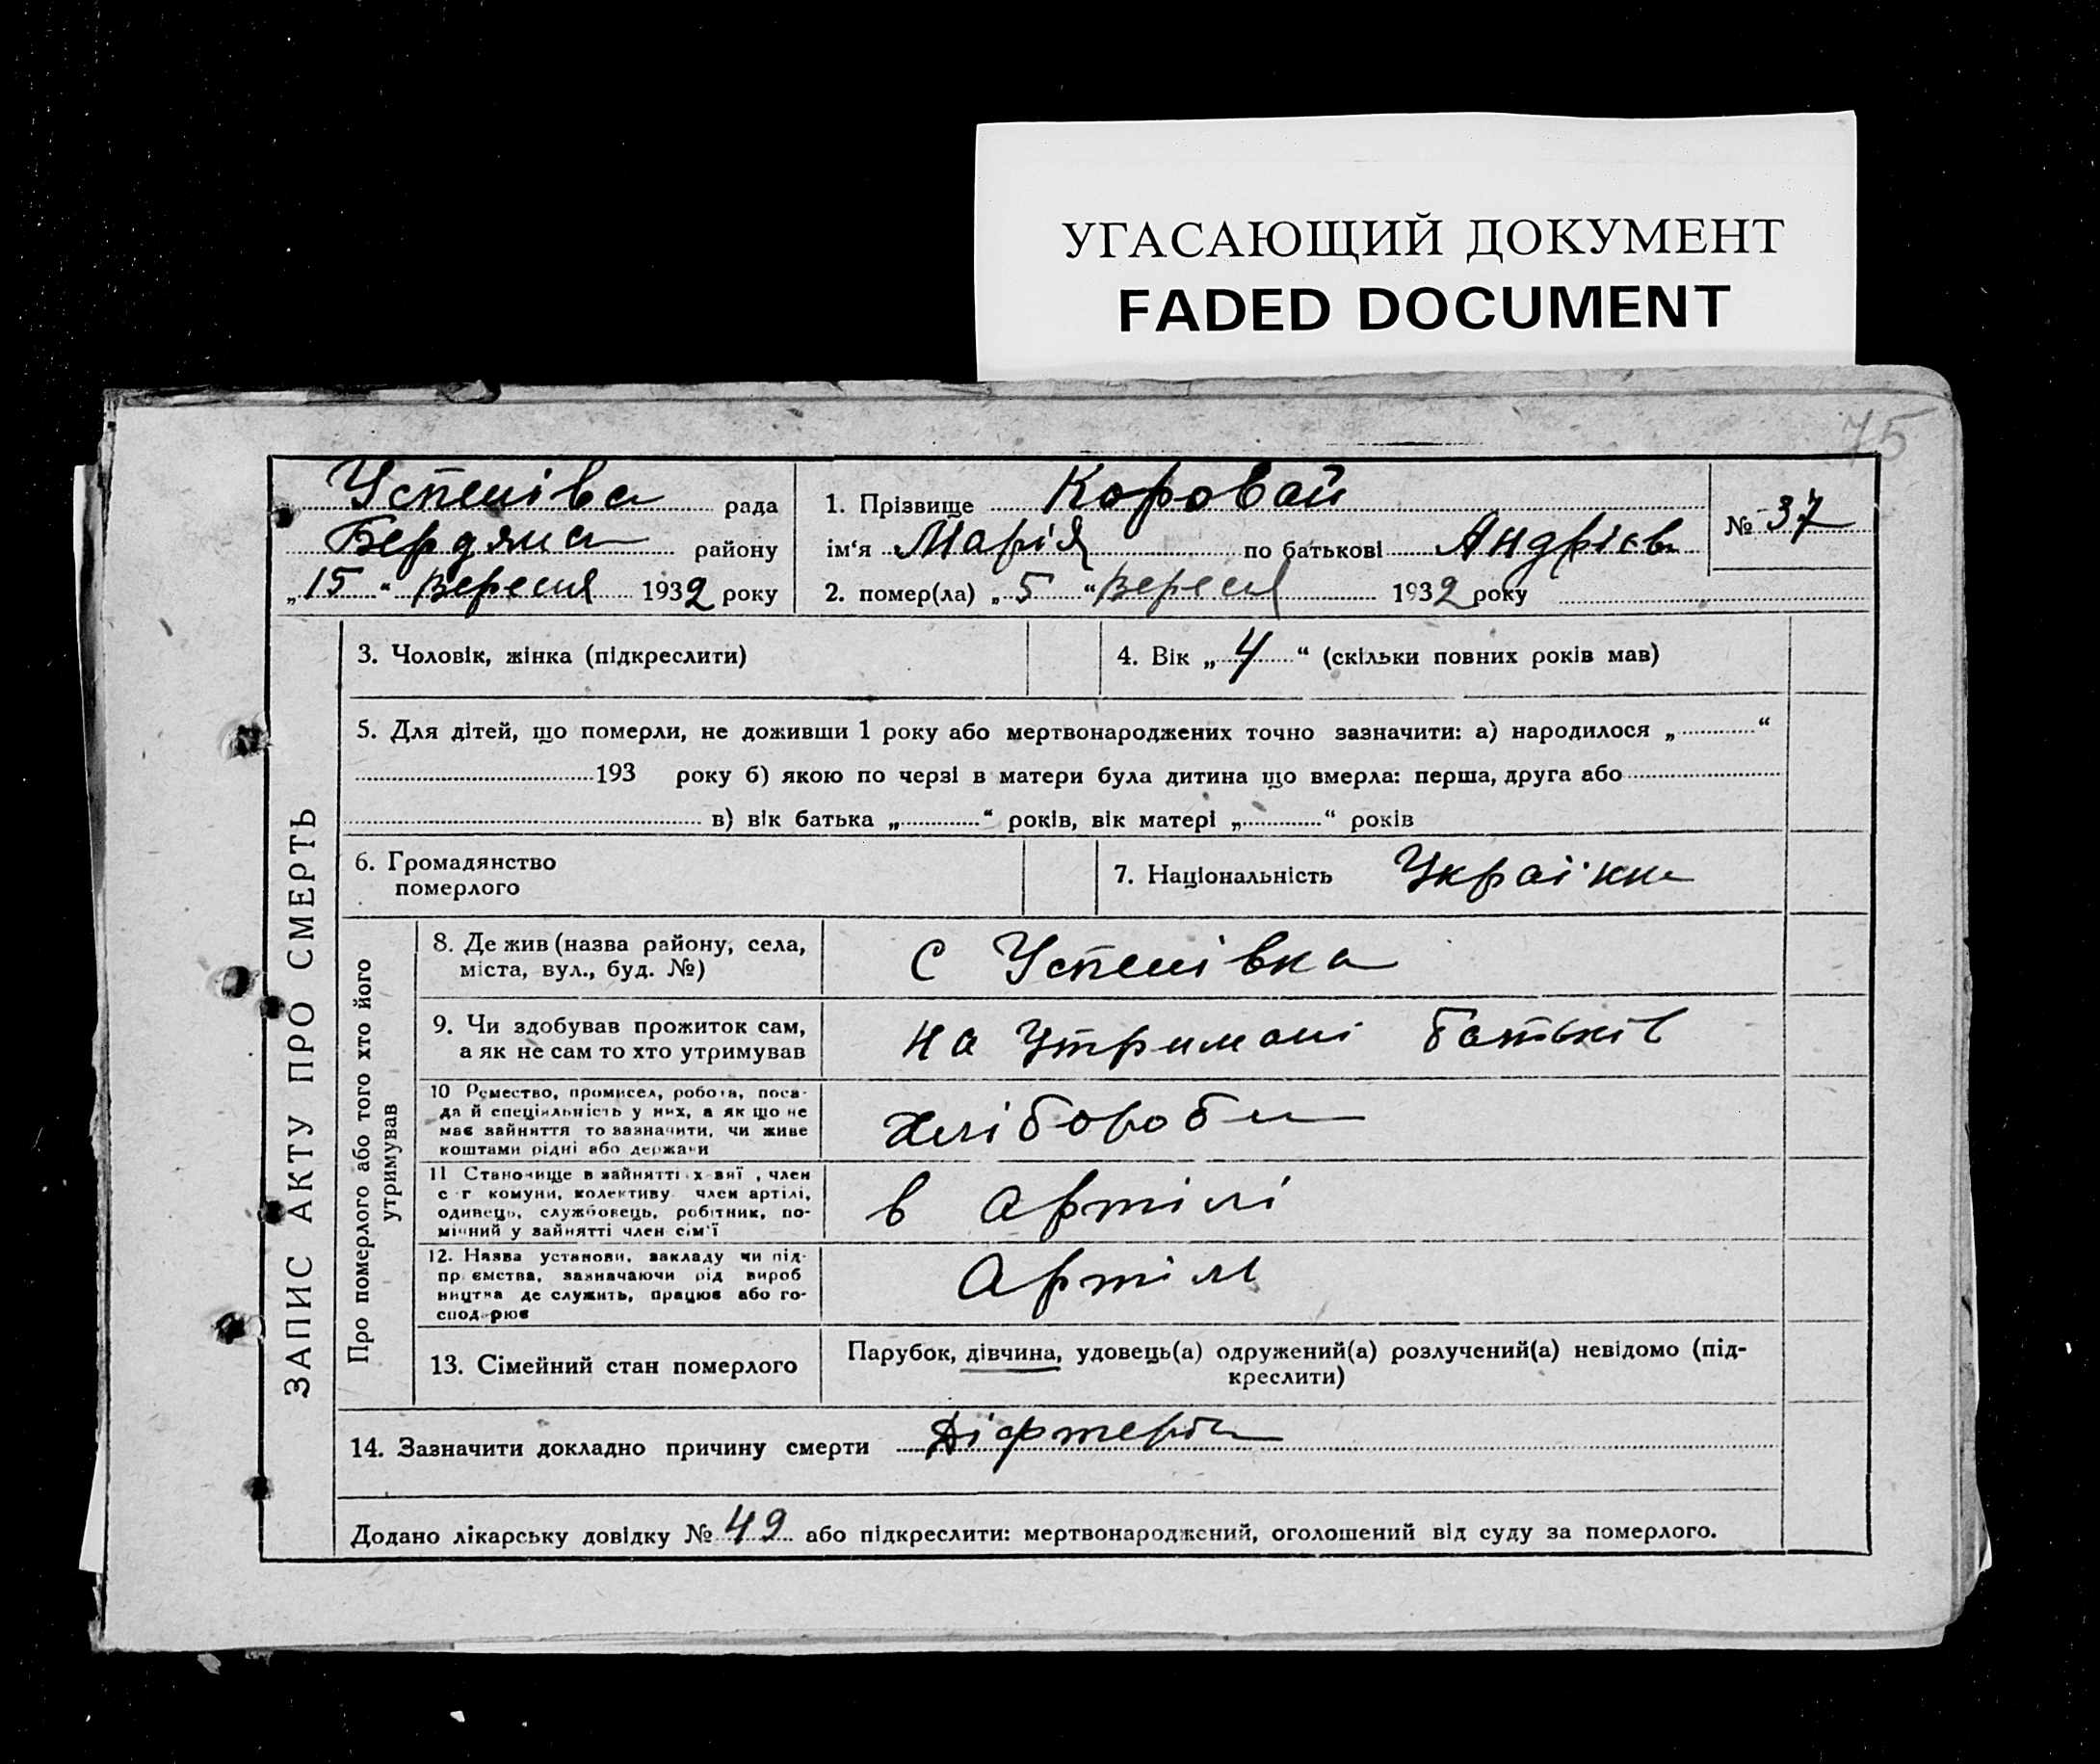 УГАСАЮЩИЙ ДОКУМЕНТ
FADED DOCUMENT
75
Успенівa рада
Бердянс району
„15“ Вересня 1932 року
1. Прізвище Коровай
ім‘я Марія по батькові Андрієв
2. помер(ла) „5“ Вересня 1932 року
№ 37
ЗАПИС АКТУ ПРО СМЕРТЬ
3. Чоловік, жінка (підкреслити)
4. Вік „4“ (скільки повних років мав)
5. Для дітей, що померли, не доживши 1 року або мертвонароджених точно зазначити: а) народилося „ “
193 року б) якою по черзі в матери була дитина що вмерла: перша, друга або
в) вік батька „ “ років, вік матері „ “ років
6. Громадянство
померлого
7. Національність Українка
Про померлого або того хто його
утримував
8. Де жив (назва району, села,
міста, вул., буд. №)
С Успенівка
9. Чи здобував прожиток сам,
а як не сам то хто утримував
На Утримані батьків
10 Ремество, промисел, робота, поса-
да й спеціяльність у них, а як що не
має зайняття то зазначити, чи живе
коштами рідні або держави
Хлібороби
11 Становище в зайнятті х-вяї, член
с-г комуни, колективу член артілі,
одинець, службовець, робітник, по-
мічний у зайнятті член сім‘ї
в Артілі
12. Назва установи, закладу чи під-
пр ємства, зазначаючи рід вироб
ництва де служить, працює або го-
сподарює
Артіль
13. Сімейний стан померлого
Парубок, дівчина, удовець(а) одружений(а) розлучений(а) невідомо (під-
креслити)
14. Зазначити докладно причину смерти Діфтерія
Додано лікарську довідку № 49 або підкреслити: мертвонароджений, оголошений від суду за померлого.